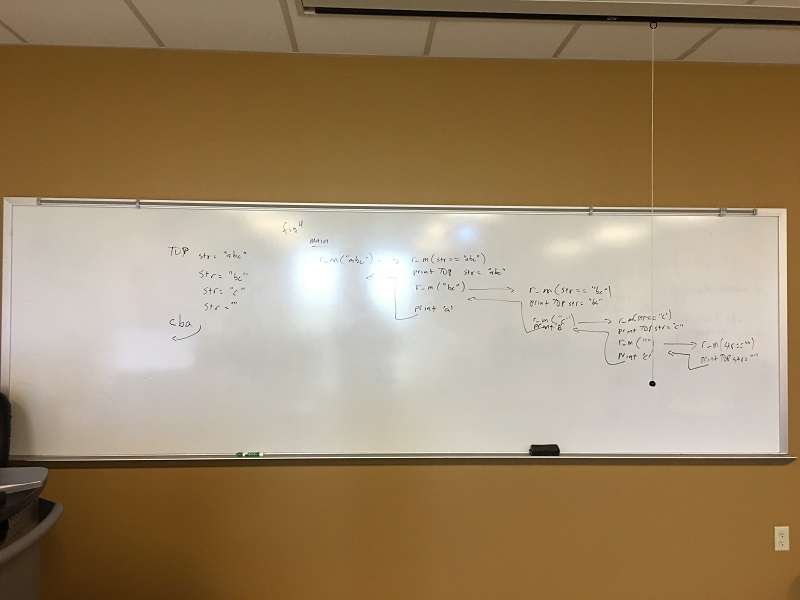 fig 4
TOP str = "abc"
str = "bc"
str = "c"
str = ""
cba
main
r_m("abc")
r_m(str == "abc")
print TOP str = "abc"
r_m("bc")
print 'a'
r_m(str == "bc")
print TOP str = "bc"
r_m("c")
print
r_m(str == "c")
print TOP str = "c"
r_m("")
print 'c'
print TOP str = ""